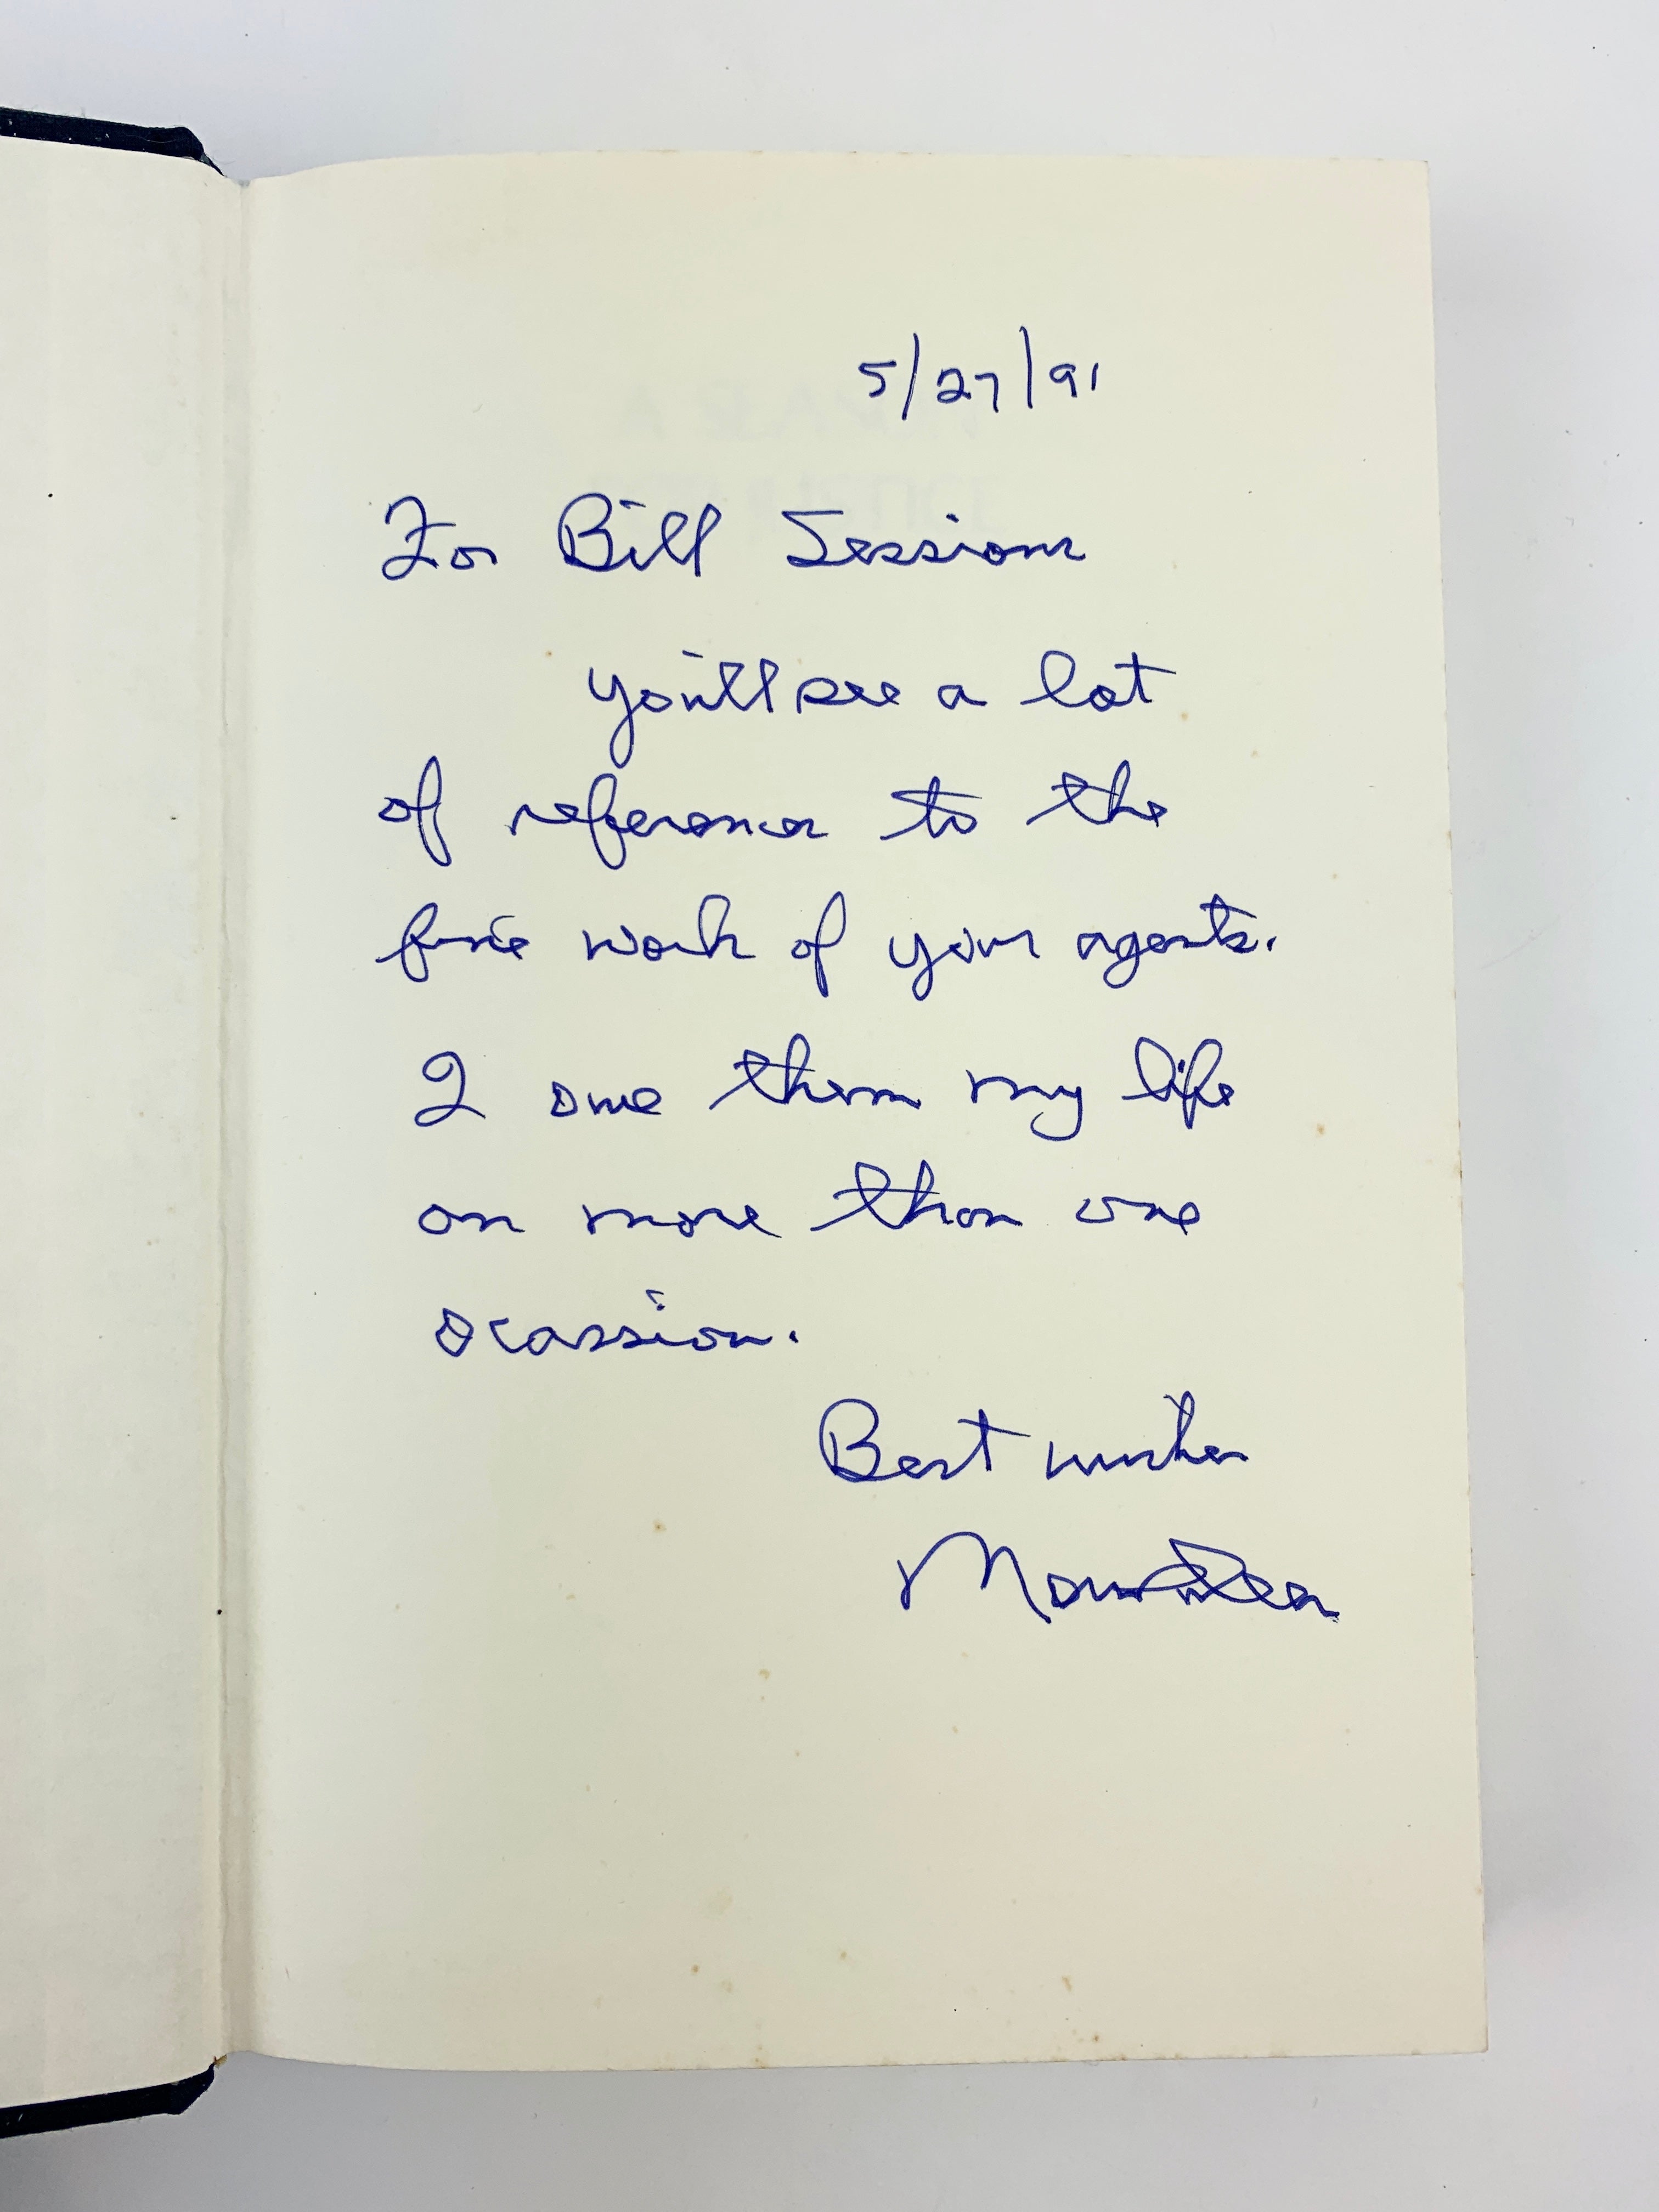 5/27/91
For Bill Sessions
you'll see a lot
of references to the
fine work of your agents.
I owe them my life
on more than one
ocassion.
Best wishes